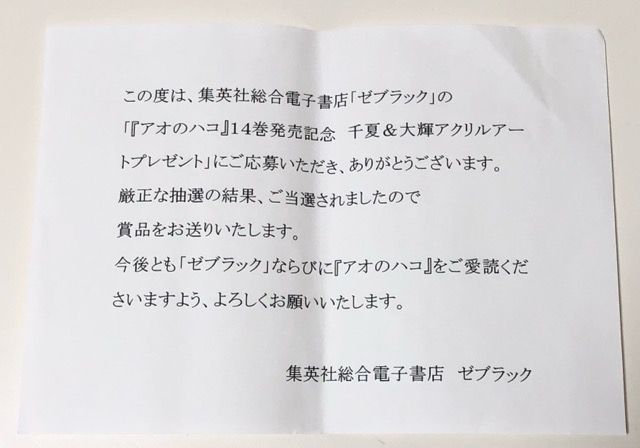 この度は、集英社総合電子書店「ゼブラック」の
「『アオのハコ』14巻発売記念　千夏＆大輝アクリルアー
トプレゼント」にご応募いただき、ありがとうございます。
厳正な抽選の結果、ご当選されましたので
賞品をお送りいたします。
今後とも「ゼブラック」ならびに『アオのハコ』をご愛読くだ
さいますよう、よろしくお願いいたします。
集英社総合電子書店　ゼブラック